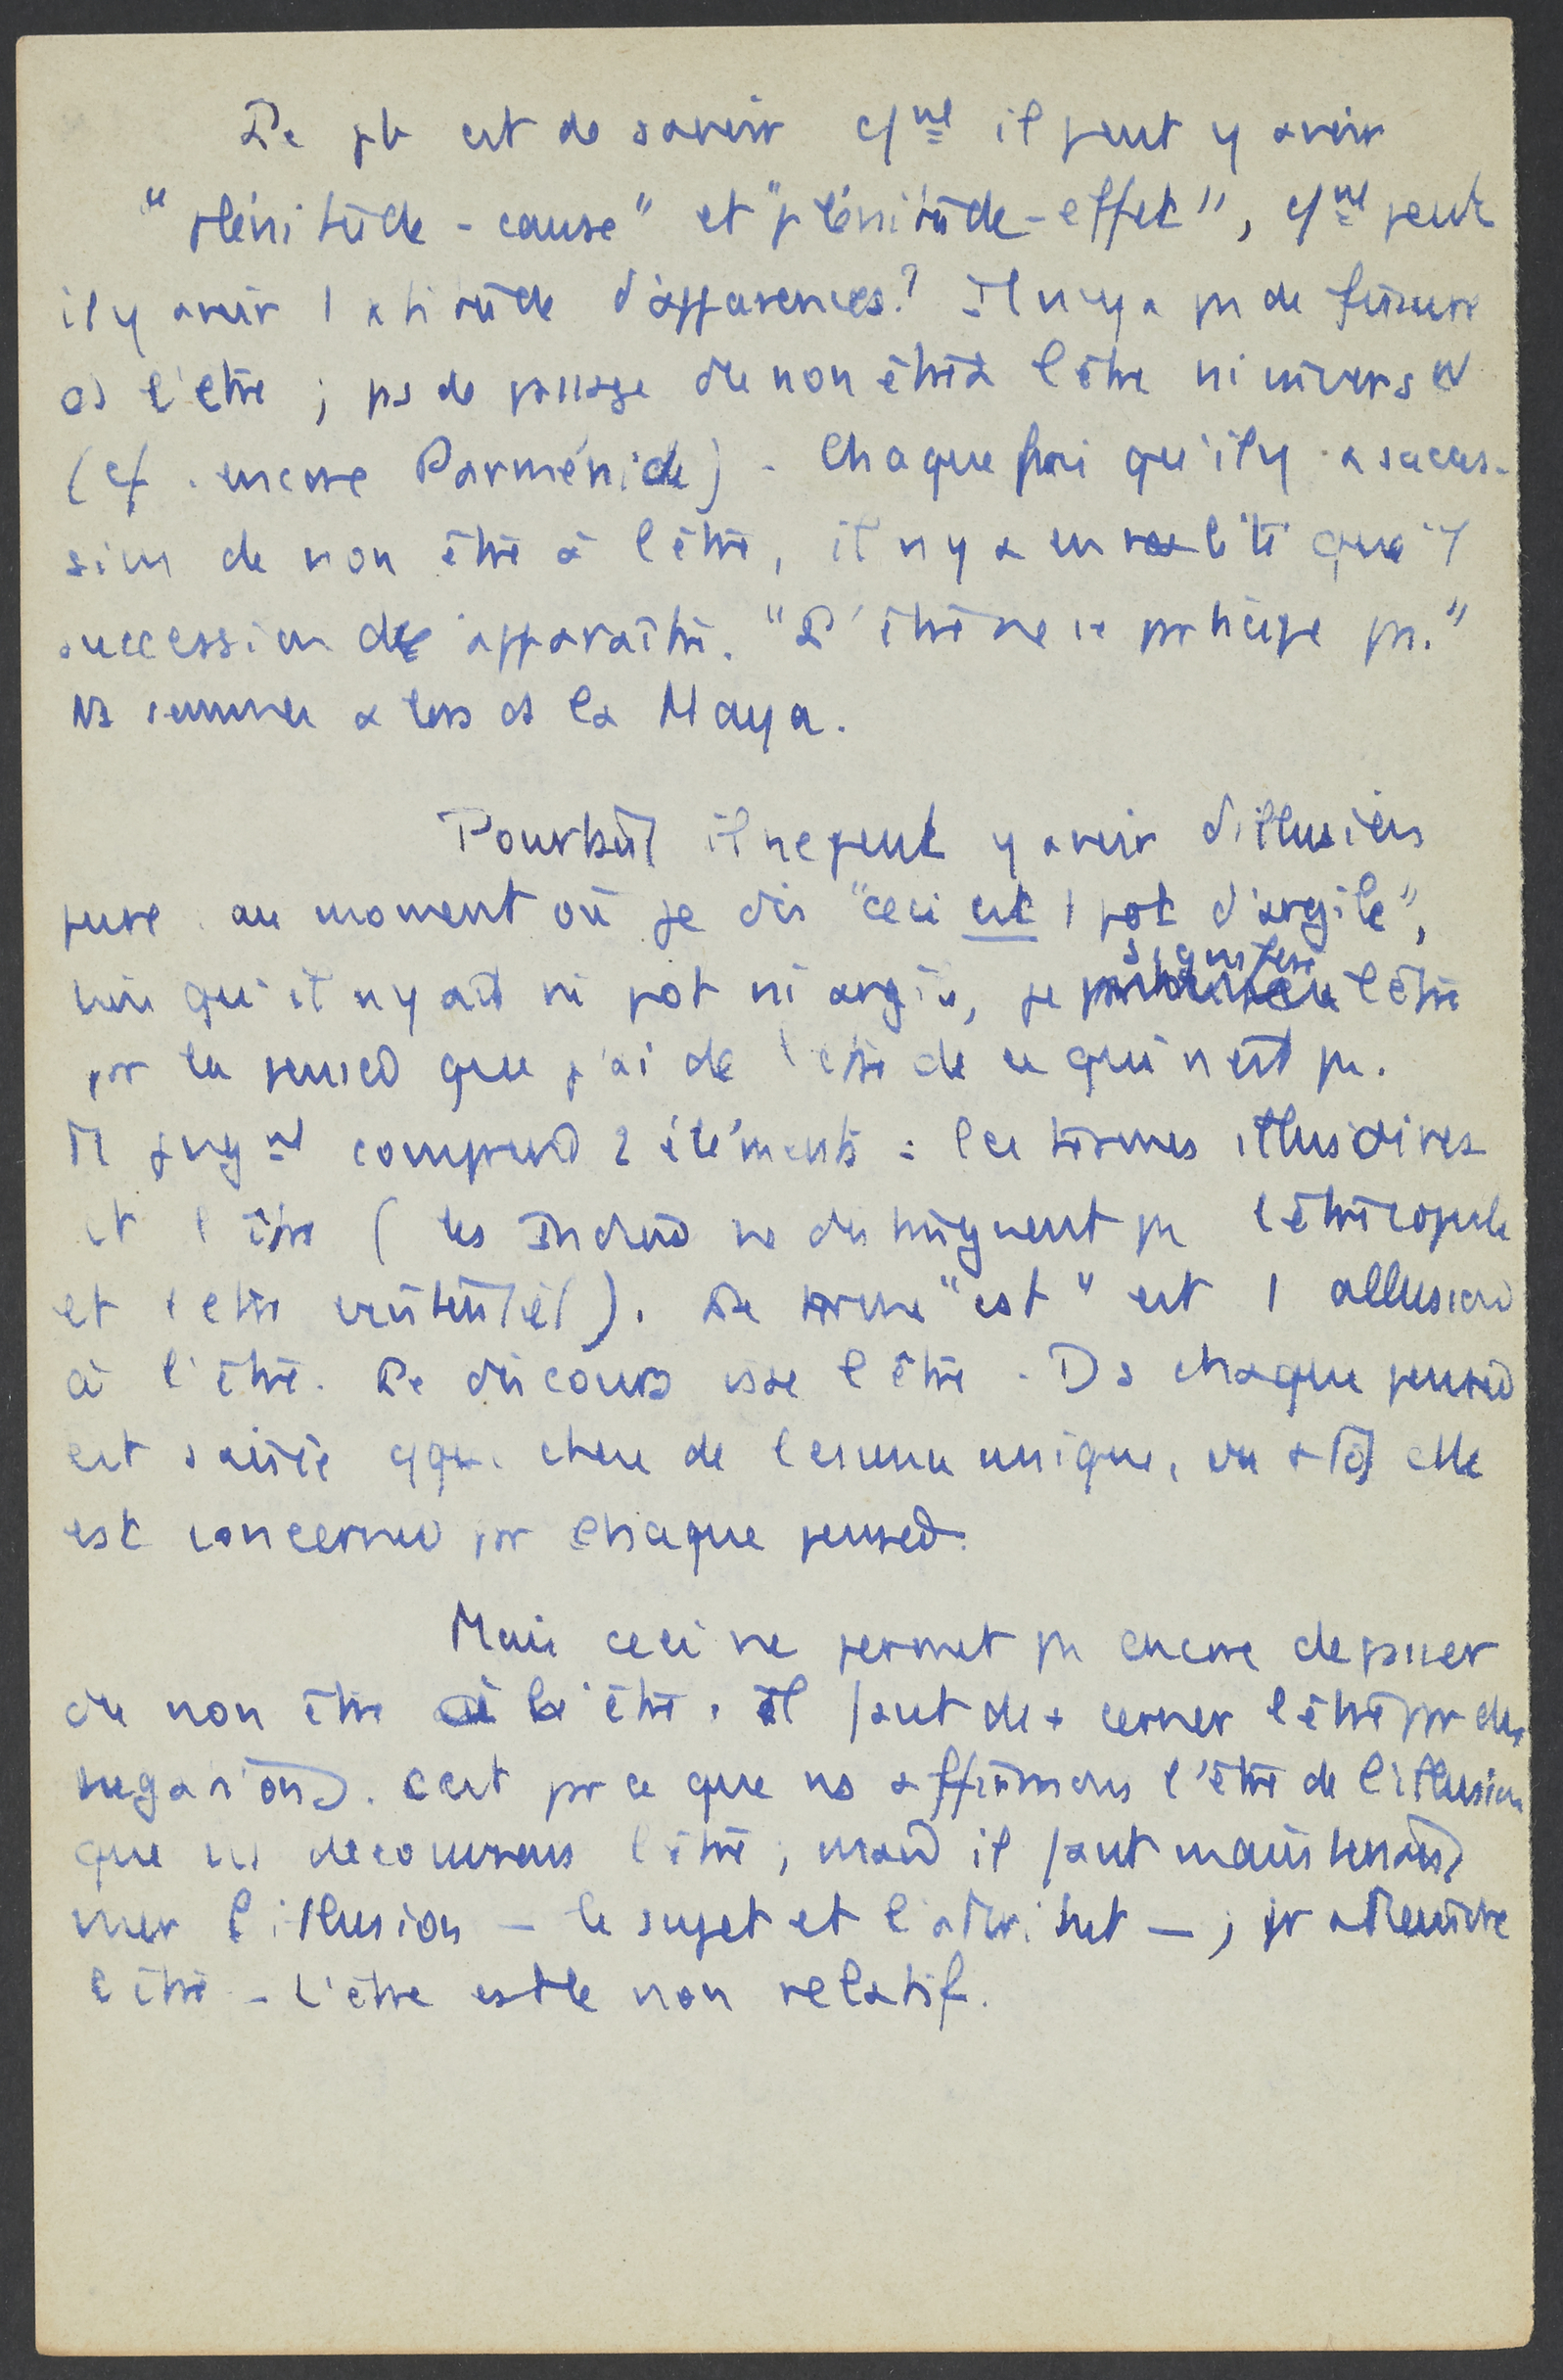 Le pb est de savoir cment il peut y avoir
"plénitude-cause" et "plénitude-effet", cment peut
il y avoir 1 altitude d'apparences? Il n'y a pas de fissure
ds l'être ; pas de passage du non être à l'être ni inverst
(cf. encore Parménide). Chaque fois qu'il y a succes-
sion de non être à l'être, il n'y a en réalité que
succession de apparaître. "L'être ne se partage pas."
Ns sommes alors ds la Maya.
Pourtant il ne peut y avoir d'illusion
pure. au moment où je dis "ceci est 1 pot d'argile",
bien qu'il n'y ait ni pot ni argile, je signifie l'être
par la pensée que j'ai de l'être de ce qui n'est pas.
Tt jugnt comprend 2 éléments : les termes illusoires
et l'être (les Indiens ne distinguent pas l'être copule
et l'être existentiel). Le terme "est" est 1 allusion
à l'être. Le discours vise l'être. Ds chaque pensée
est saisie qque chose de l'essence unique, ou plutôt elle
est concernée par chaque pensée.
Mais ceci ne permet pas encore de passer
du non être à l'être. Il faut de + cerner l'être par des
négations. C'est parce que ns affirmons l'être de l'illusion
que ns découvrons l'être ; mais il faut maintenant
nier l'illusion – le sujet et l'attribut – ; pr atteindre
l'être – L'être est le non relatif.